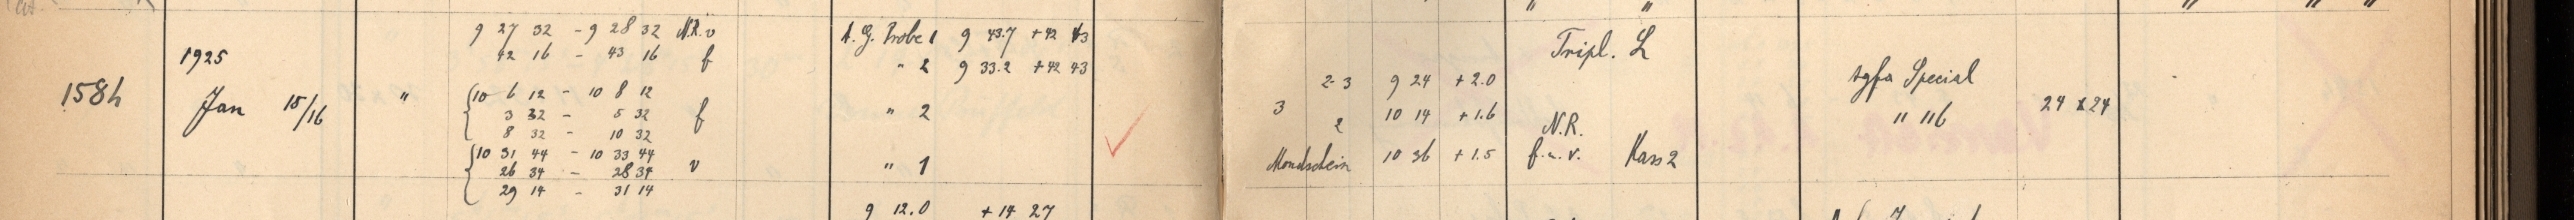 9 27 32 - 9 28 32 N.R. v
42 16 - 43 16 f
A. G. Probe 1 9 43.7 +42 43
" 2 9 33.2 +42 43
1925
158h Jan 15/16 "
10 6 12 - 10 8 12
3 32 - 5 32 f
8 32 - 10 32
" 2
10 31 44 - 10 33 44
26 34 - 28 34 v
29 14 - 31 14
" 1
9 12.0 +14 27
" "
Tripl. L
2-3 9 24 +2.0
3 2 10 14 +1.6
Mondschein 10 36 +1.5
N.R.
f. u. v. Kass 2
Agfa Special
" 116
24 x 24
" " "